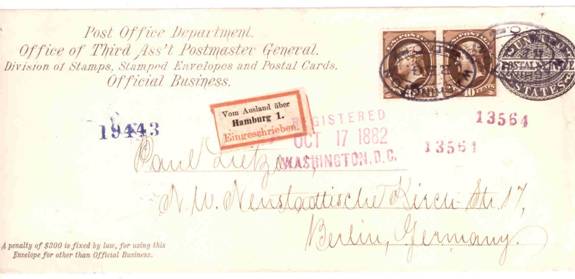 Post Office Department.
Office of Third Ass't Postmaster General.
Division of Stamps, Stamped Envelopes and Postal Cards.
Official Business.
POSTAL SERVICE
STATES
10 CENTS
Vom Ausland über
Hamburg 1.
Eingeschrieben.
19443
REGISTERED
OCT 17 1882
WASHINGTON, D.C.
13564
13561
Paul
N.W. Neustadtische Kirch Str 17,
Berlin, Germany.
A penalty of $300 is fixed by law, for using this
Envelope for other than Official Business.